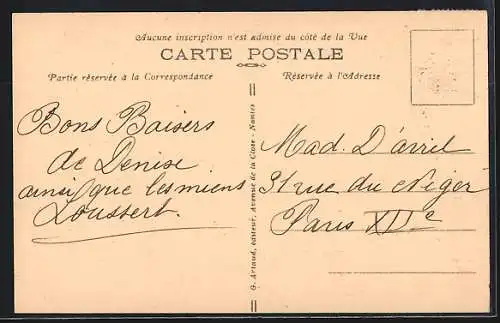 Aucune inscription n'est admise du côté de la Vue
CARTE POSTALE
Partie réservée à la Correspondance
Réservée à l'Adresse
Bons Baisers
de Denise
ainsi que les miens
Loussert.
G. Artaud, éditeur, Avenue de la Close - Nantes
Mad. D'avril
31 rue du Niger
Paris XIIe